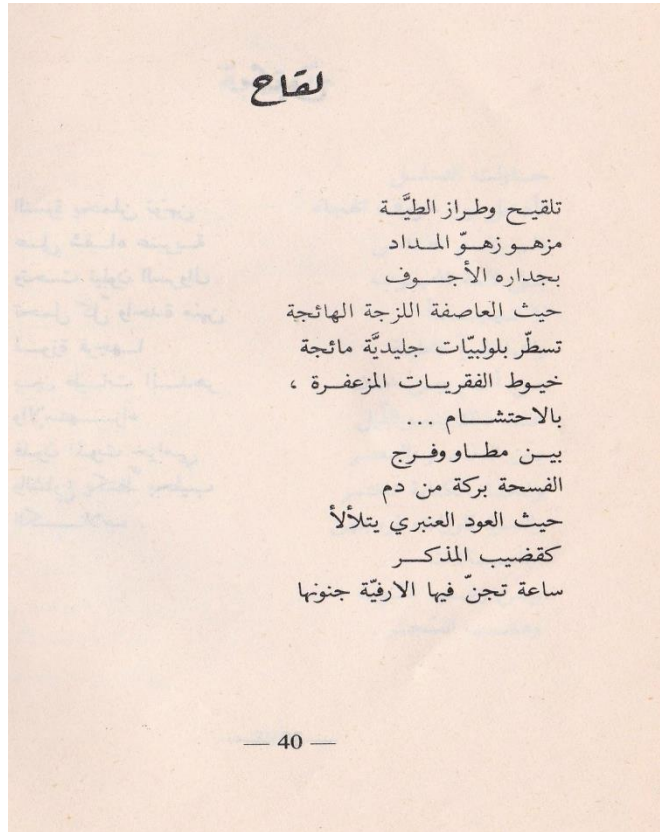 لقاح
تلقيح وطراز الطيَّة
مزهو زهوّ المداد
بجداره الأجوف
حيث العاصفة اللزجة الهائجة
تسطّر بلولبيّات جليديَّة مائجة
خيوط الفقريات المزعفرة ،
بالاحتشام ...
بين مطاو وفرج
الفسحة بركة من دم
حيث العود العنبري يتلألأ
كقضيب المذكر
ساعة تجنّ فيها الارفيّة جنونها
— 40 —